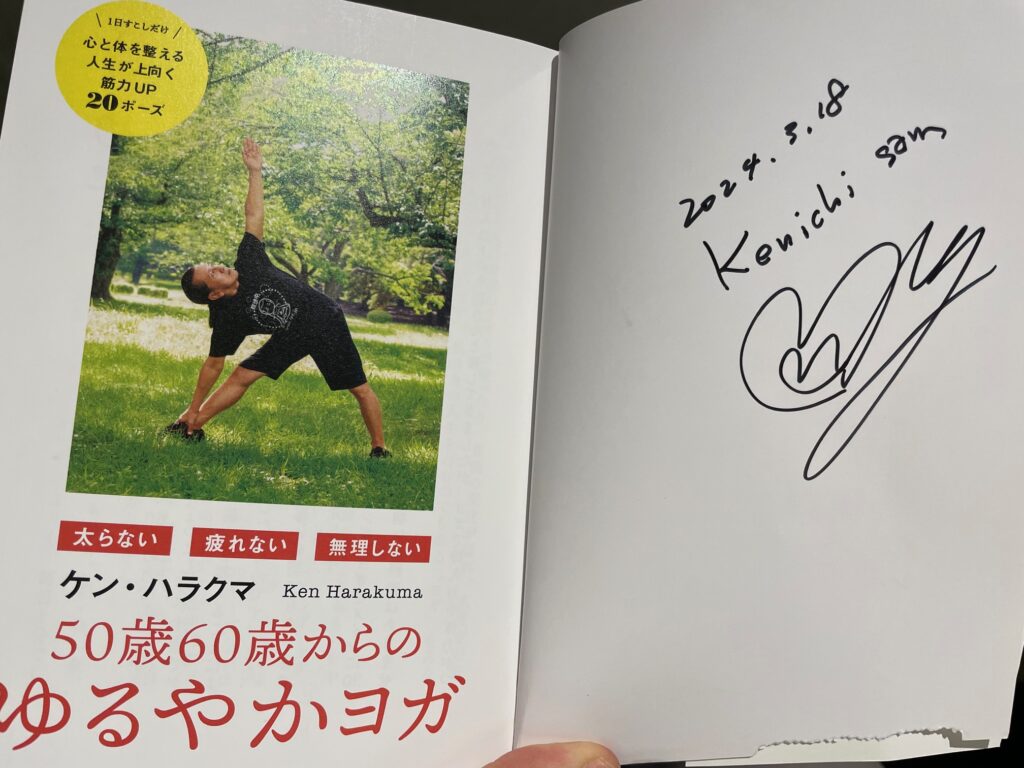 1日すこしだけ
心と体を整える
人生が上向く
筋力UP
20ポーズ
太らない 疲れない 無理しない
ケン・ハラクマ Ken Harakuma
50歳60歳からの
ゆるやかヨガ
2024.3.18
Kenichi san